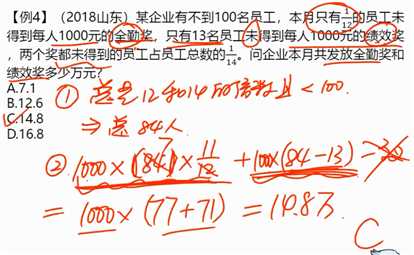 【例4】（2018山东）某企业有不到100名员工，本月只有1/12的员工未
得到每人1000元的全勤奖，只有13名员工未得到每人1000元的绩效
奖，两个奖都未得到的员工占员工总数的1/14。问企业本月共发放全勤奖和
绩效奖多少万元？
A.7.1
B.12.6
C.14.8
D.16.8
① 总是12和14的倍数且<100.
⇒ 总84人.
② 1000×(84)×11/12 + 1000×(84-13)=
7
= 1000×(77+71) = 14.8万.
C